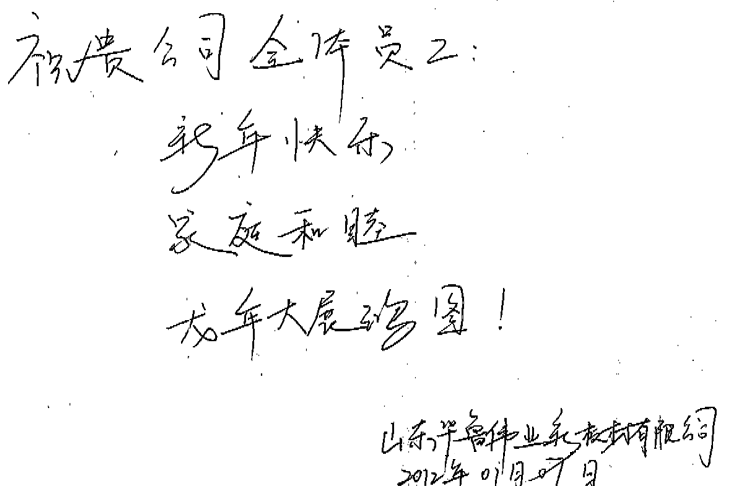 祝贵公司全体员工:
新年快乐
家庭和睦
龙年大展鸿图!
山东华鲁伟业新板材有限公司
2012年01月07日